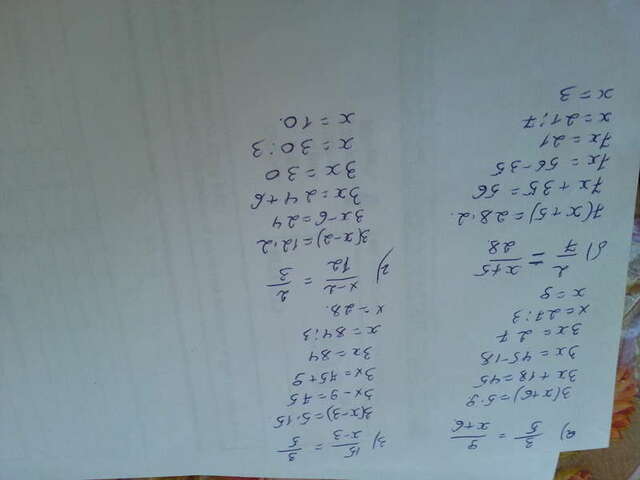 а) 3/5 = 9/x+6
3(x+6)=5·9
3x+18=45
3x=45-18
3x=27
x=27:3
x=9
б) 2/7 = x+5/28
7(x+5)=28·2.
7x+35=56
7x=56-35
7x=21
x=21:7
x=3
з) 15/x-3 = 3/5
3(x-3)=5·15
3x-9=75
3x=75+9
3x=84
x=84:3
x=28.
г) x-2/12 = 2/3
3(x-2)=12·2
3x-6=24
3x=24+6
3x=30
x=30:3
x=10.